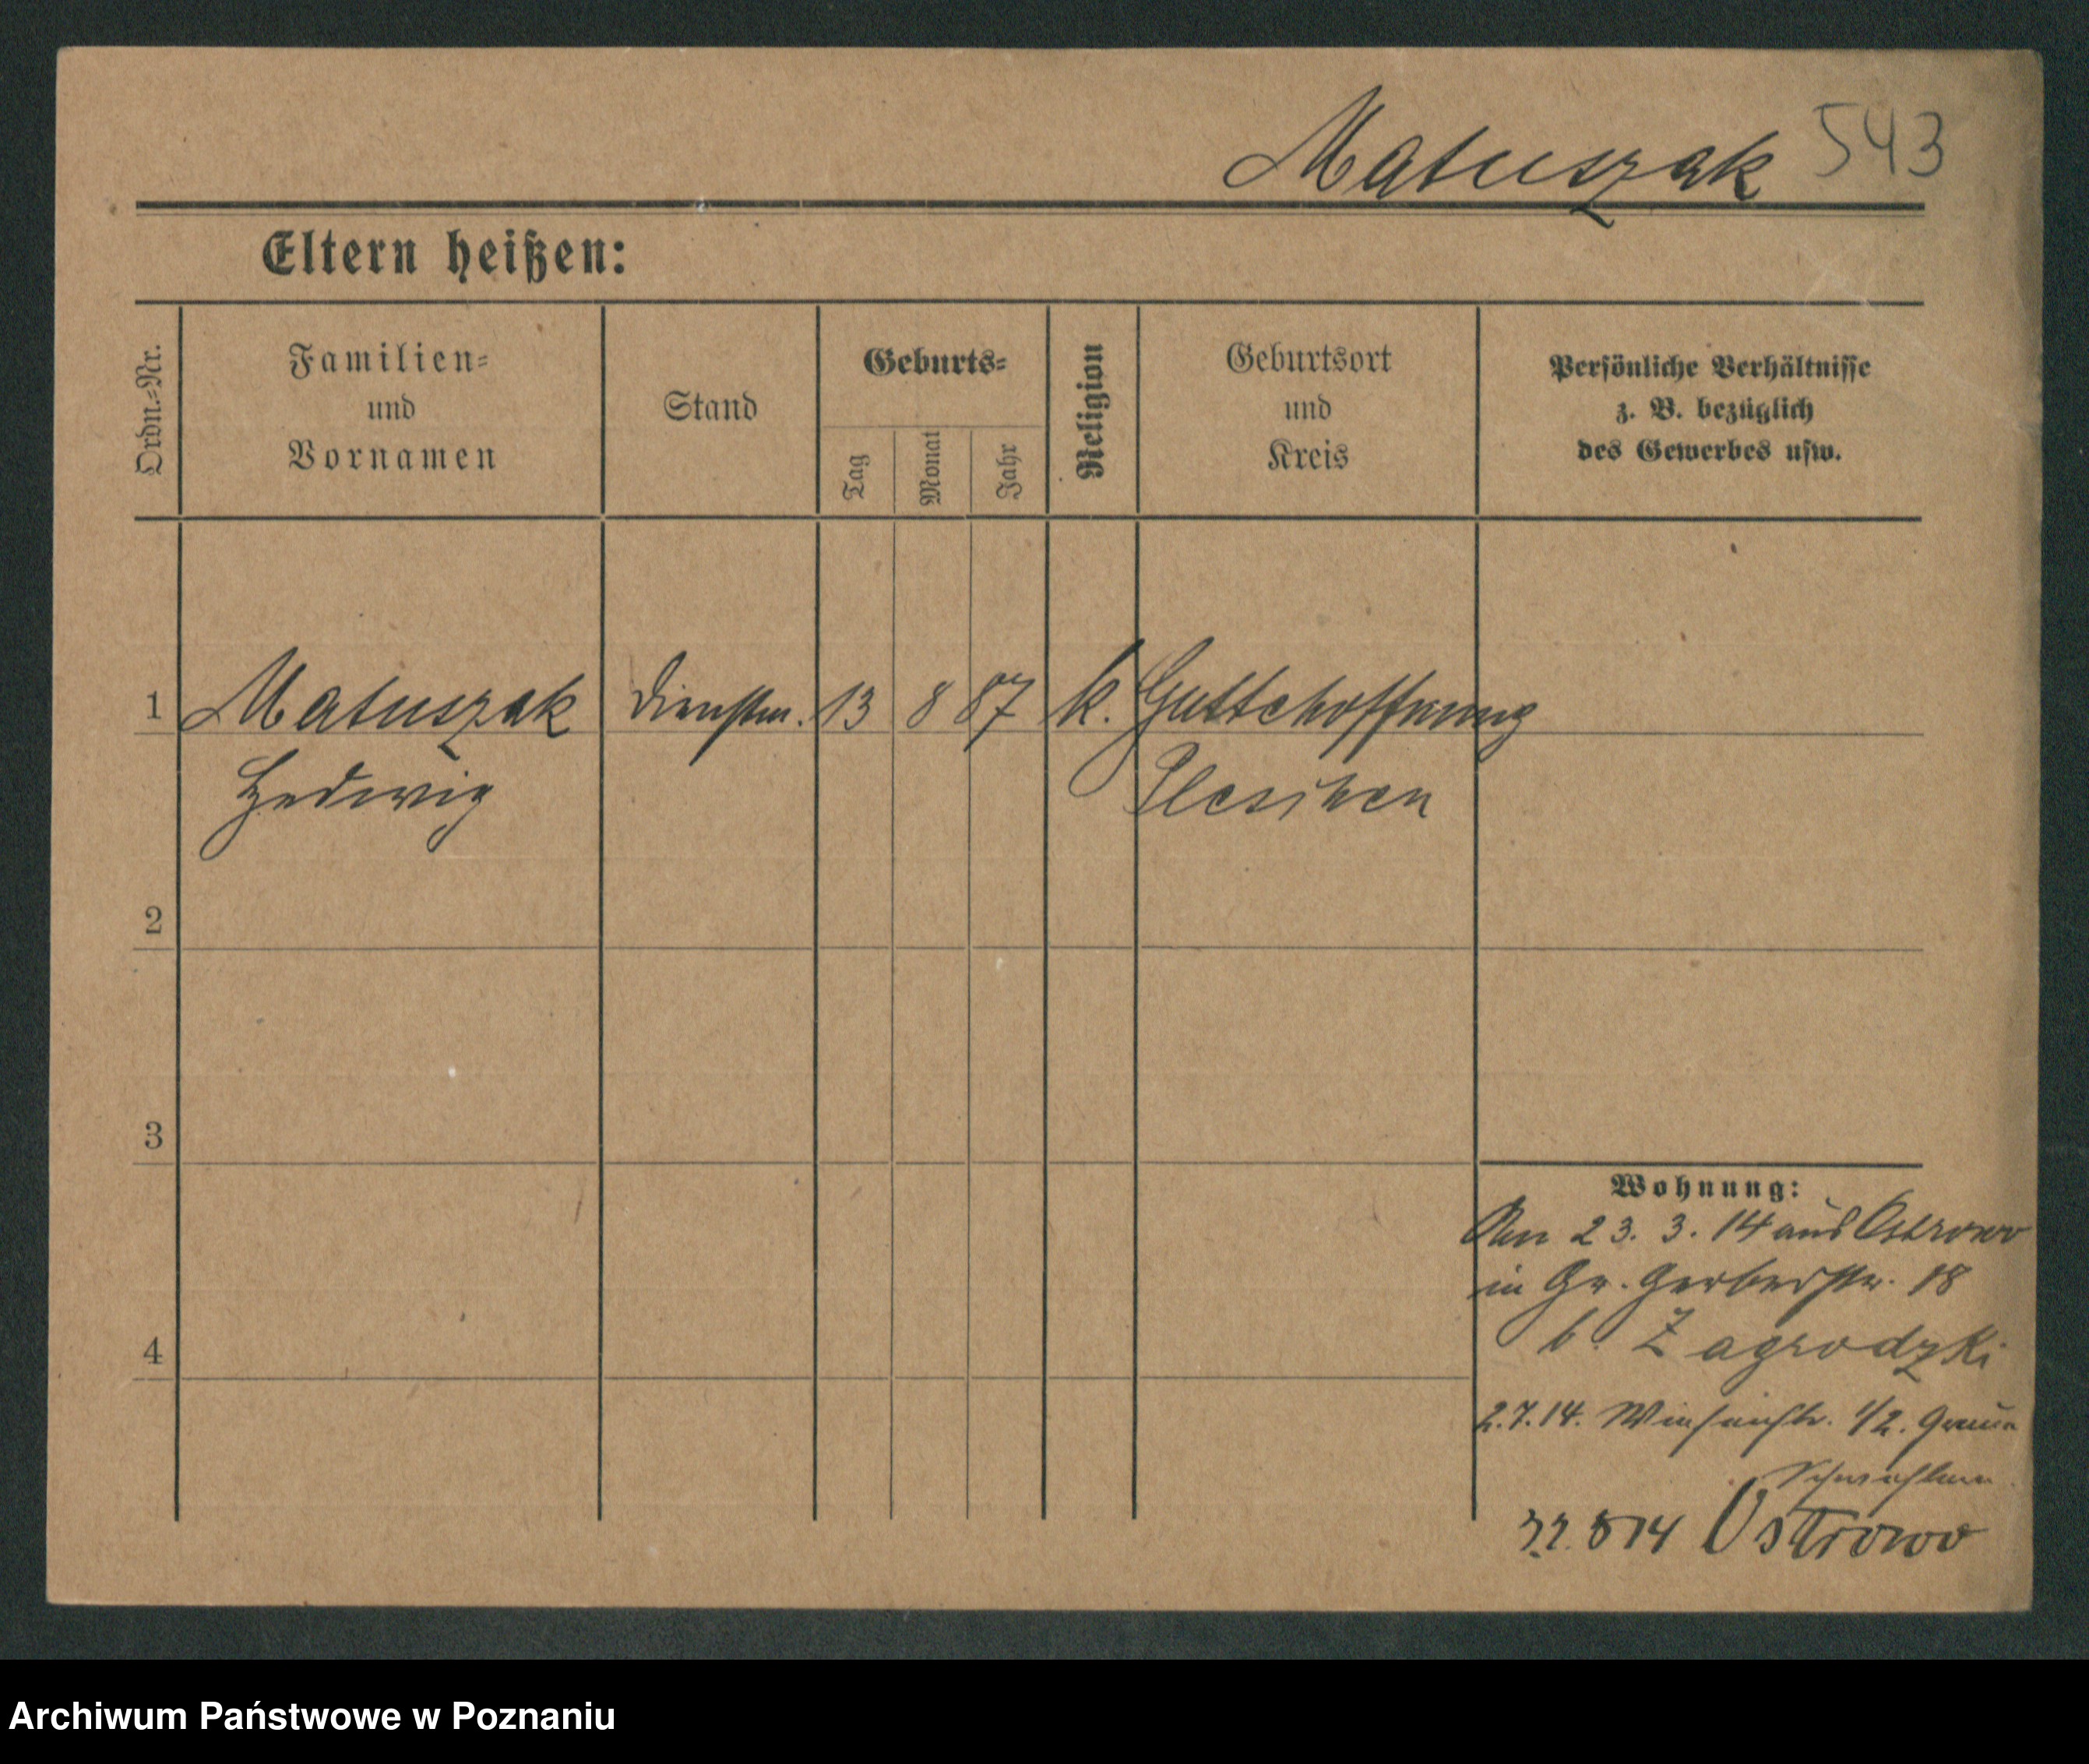 Matuszak 543
Eltern heißen:
Ordn.-Nr.
Familien-
und
Vornamen
Stand
Geburts-
Tag
Monat
Jahr
Religion
Geburtsort
und
Kreis
Persönliche Verhältnisse
z. B. bezüglich
des Gewerbes usw.
1 Matuszak Dienstm. 13 8 87 k. Guttehoffnung
Hedwig Pleschen
2
3
4
Wohnung:
Am 23. 3. 14 aus Ostrowo
in Gr. Gerberstr. 18
b. Zagrodzki
2.7.14. 1/2.
814 Ostrowo
Archiwum Państwowe w Poznaniu